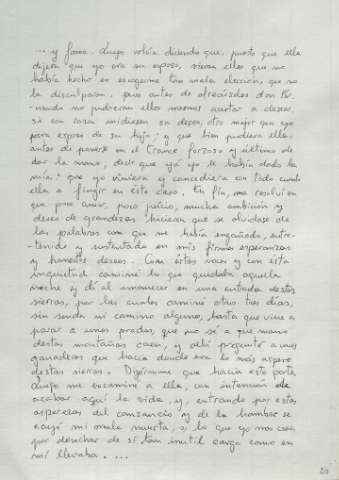 ... y fama. Luego volvía diciendo que, puesto que ella
dijera que yo era su esposo, vieran ellos que no
había hecho en escogerme tan mala elección, que no
la disculparan, pues antes de ofrecérseles don Fer-
nando no pudieran ellos mesmos acertar a desear,
si con razón midiesen su deseo, otro mejor que yo
para esposo de su hija; y que bien pudiera ella,
antes de ponerse en el trance forzoso y último de
dar la mano, decir que ya yo le había dado la
mía: que yo viniera y concediera con todo cuanto
ella fingir en este caso. En fin, me resolví en
que poco amor, poco juicio, mucha ambición y
deseo de grandezas hicieron que se olvidase de
las palabras con que me había engañado, entre-
tenido y sustentado en mis firmes esperanzas
y honestos deseos. Con estas voces y con esta
inquietud caminé lo que quedaba aquella
noche y di al amanecer en una entrada destas
sierras, por las cuales caminé otros tres días,
sin senda ni camino alguno, hasta que vine a
parar a unos prados, que no sé a qué mano
destas montañas caen, y allí pregunté a unos
ganaderos que hacia dónde era lo más áspero
destas sierras. Dijéronme que hacia esta parte.
Luego me encaminé a ella, con intención de
acabar aquí la vida, y, entrando por estas
asperezas, del cansancio y de la hambre se
cayó mi mula muerta, o, lo que yo más creo,
por desechar de sí tan inútil carga como en
mí llevaba. ...